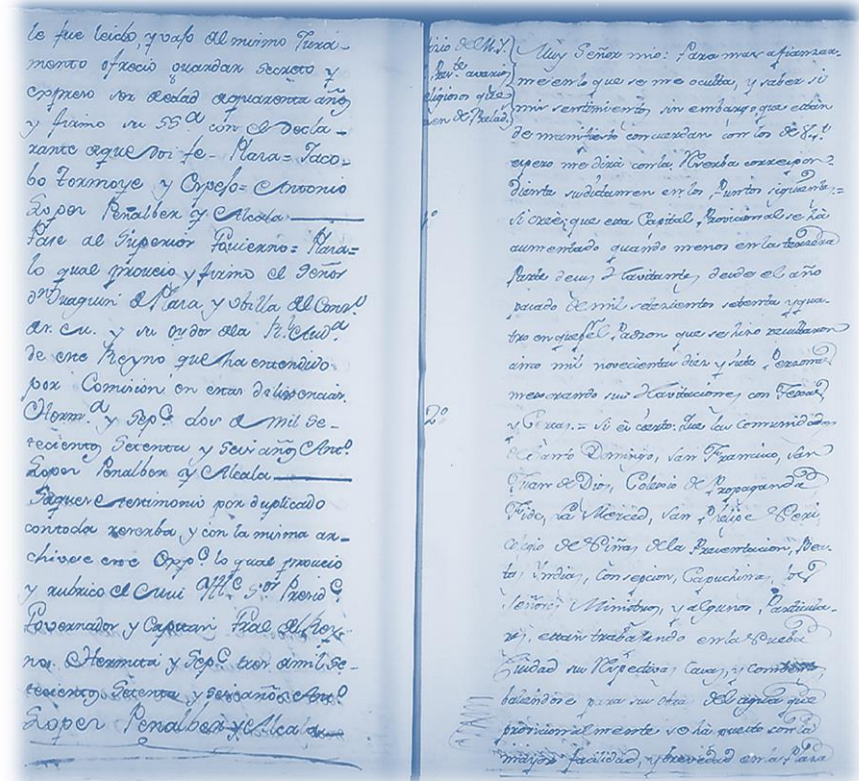 le fue leido, y vajo del mismo Jura-
mento ofrecio guardar secreto y
expreso ser de edad de quarenta años
y firmo su SSª con el Decla-
rante de que doi fe = Plaza = Jaco-
bo Formoye y Crespo = Antonio
Lopez Peñalber y Alcala
Pase al Superior Govierno = Plaza =
lo qual proveio y firmo el Señor
Dn Joaquin de Plaza y Ubilla del Consº
de S.M. y su oydor de la Rl Audª
de este Reyno que ha entendido
por Comision en estas deligencias.
Hermª y Sepe dos de mil Se-
tecientos Setenta y Seis años Antº
Lopez Peñalber y Alcala
Saquese testimonio por duplicado
con toda reserba y con la misma ar-
chivese este Exppe lo qual proveio
y rubrico el Mui Ille Sor Presidte
Governador y Capitan Gral del Rey-
no. Hermita y Sepe tres de mil Se-
tecientos Setenta y Seis años Antº
Lopez Peñalber y Alcala
de M.Y.
Presᵗᵉ
religiosos que
Muy Señor mio: Para mas afianzar-
me en lo que se me oculta, y saber si
mis sentimientos sin embargo que estan
de manifiesto concuerdan con los de
espero me dirá con la Reserba correspon-
diente su dictamen en los Puntos siguientes =
1º Si cree; que esta Capital Provicional se há
aumentado quando menos en la tercera
Parte de sus Havitantes, desde el año
pasado de mil setecientos setenta y qua-
tro en que el Padron que se hizo resultaron
cinco mil novecientas diez y siete Personas
mesorando sus Havitaciones con Texas
2º y Cercas. = Si es cierto: Que las Comunidades
de Santo Domingo, San Francisco, San
Juan de Dios, Colegio de Propaganda
Fide, La Merced, San Phelipe Neri,
Colegio de Niñas de la Presentacion, Bea-
tas Yndias, Consepcion, Capuchinas, los
Señores Ministros, y algunos Particula-
res, estan trabajando en la Nueba
Ciudad sus Respectivas Casas, y
baliendose para sus obras del agua que
provicionalmente se há puesto con la
mayor facilidad, y brevedad en la Plaza